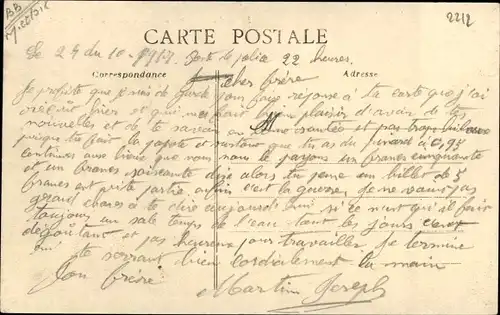 2212
CARTE POSTALE
Le 24 du 10 - 1917. Poste de police 22 heures.
Correspondance Adresse
Cher frère
Je profite que je suis de garde pour faire réponse à ta carte que j'ai
hier et qui m'a fait bien plaisir d'avoir de tes
nouvelles et de te savoir en bonne santé et pas trop
puisque tu fait la popote et surtout que tu as du pinard à 0,95
continue aux lieux que nous nous le payons un francs cinquante
et un francs soixante dire alors tu pense un billet de 5
francs est vite partie enfin c'est la guerre. Je ne vois pas
grand choses à te dire aujourd'hui si ce n'est qu'il fait
toujours un sale temps de l'eau tout les jours c'est
dégoûtant et pas heureux pour travailler. Je termine
en te serrant bien cordialement la main
Ton frère
Martin Joseph